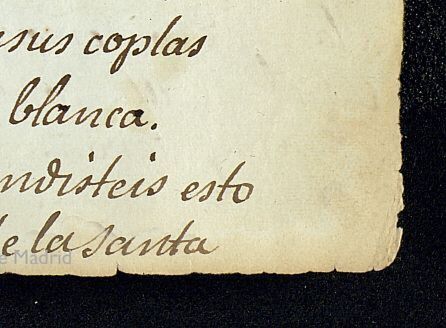 sus coplas
blanca.
ndisteis esto
de la santa
e Madrid